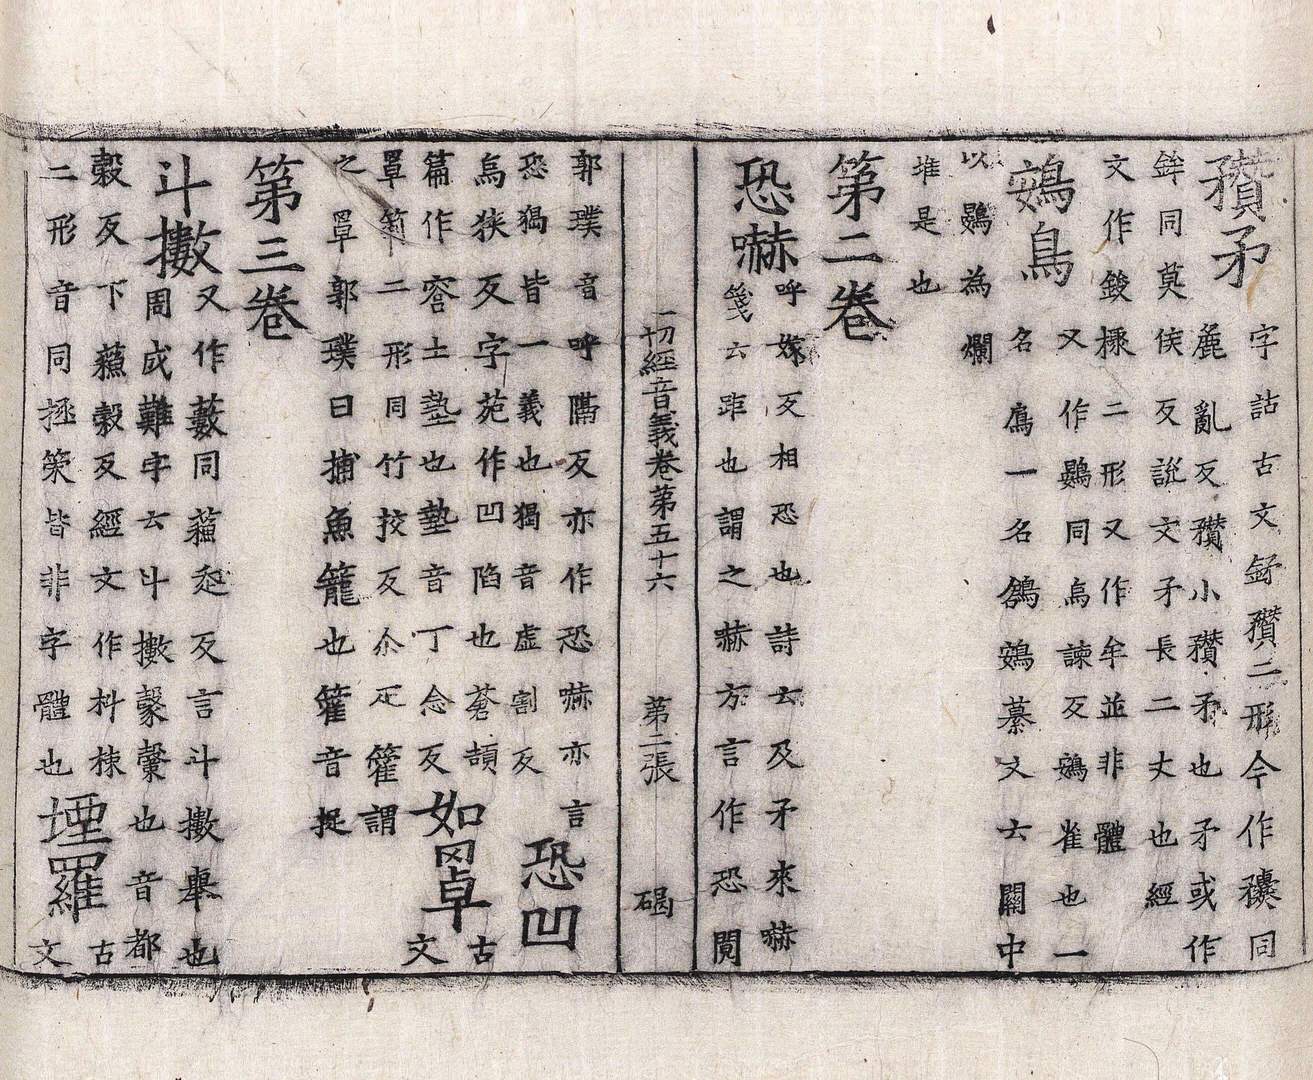 矟矛 字詁古文錊矟二形今作𥎞同
麁亂反矟小矟矛也矛或作
鉾同莫侯反說文矛長二丈也經
文作鋑㯳二形又作牟並非體
鴳鳥 又作鷃同烏諫反鴳雀也一
名鳸一名鴿鴳纂文云關中
以鷃為爛
堆是也
第二卷
恐嚇 呼嫁反相恐也詩云及矛來嚇
箋云距也謂之嚇方言作恐閱
一切經音義卷第五十六 第二張 碣
郭璞音呼隔反亦作恐嚇亦言
恐猲皆一義也猲音虛割反 恐凹
烏狹反字苑作凹陷也蒼頡 古
篇作容土墊也墊音丁念反 如罩 文
罩箌二形同竹挍反尒疋籗謂
之罩郭璞曰捕魚籠也籗音捉
第三卷
斗擻 又作藪同蘓走反言斗擻舉也
周成難字云斗擻㲄㲄也音都
穀反下蘓穀反經文作枓棟 古
二形音同拯筞皆非字體也 堙羅 文